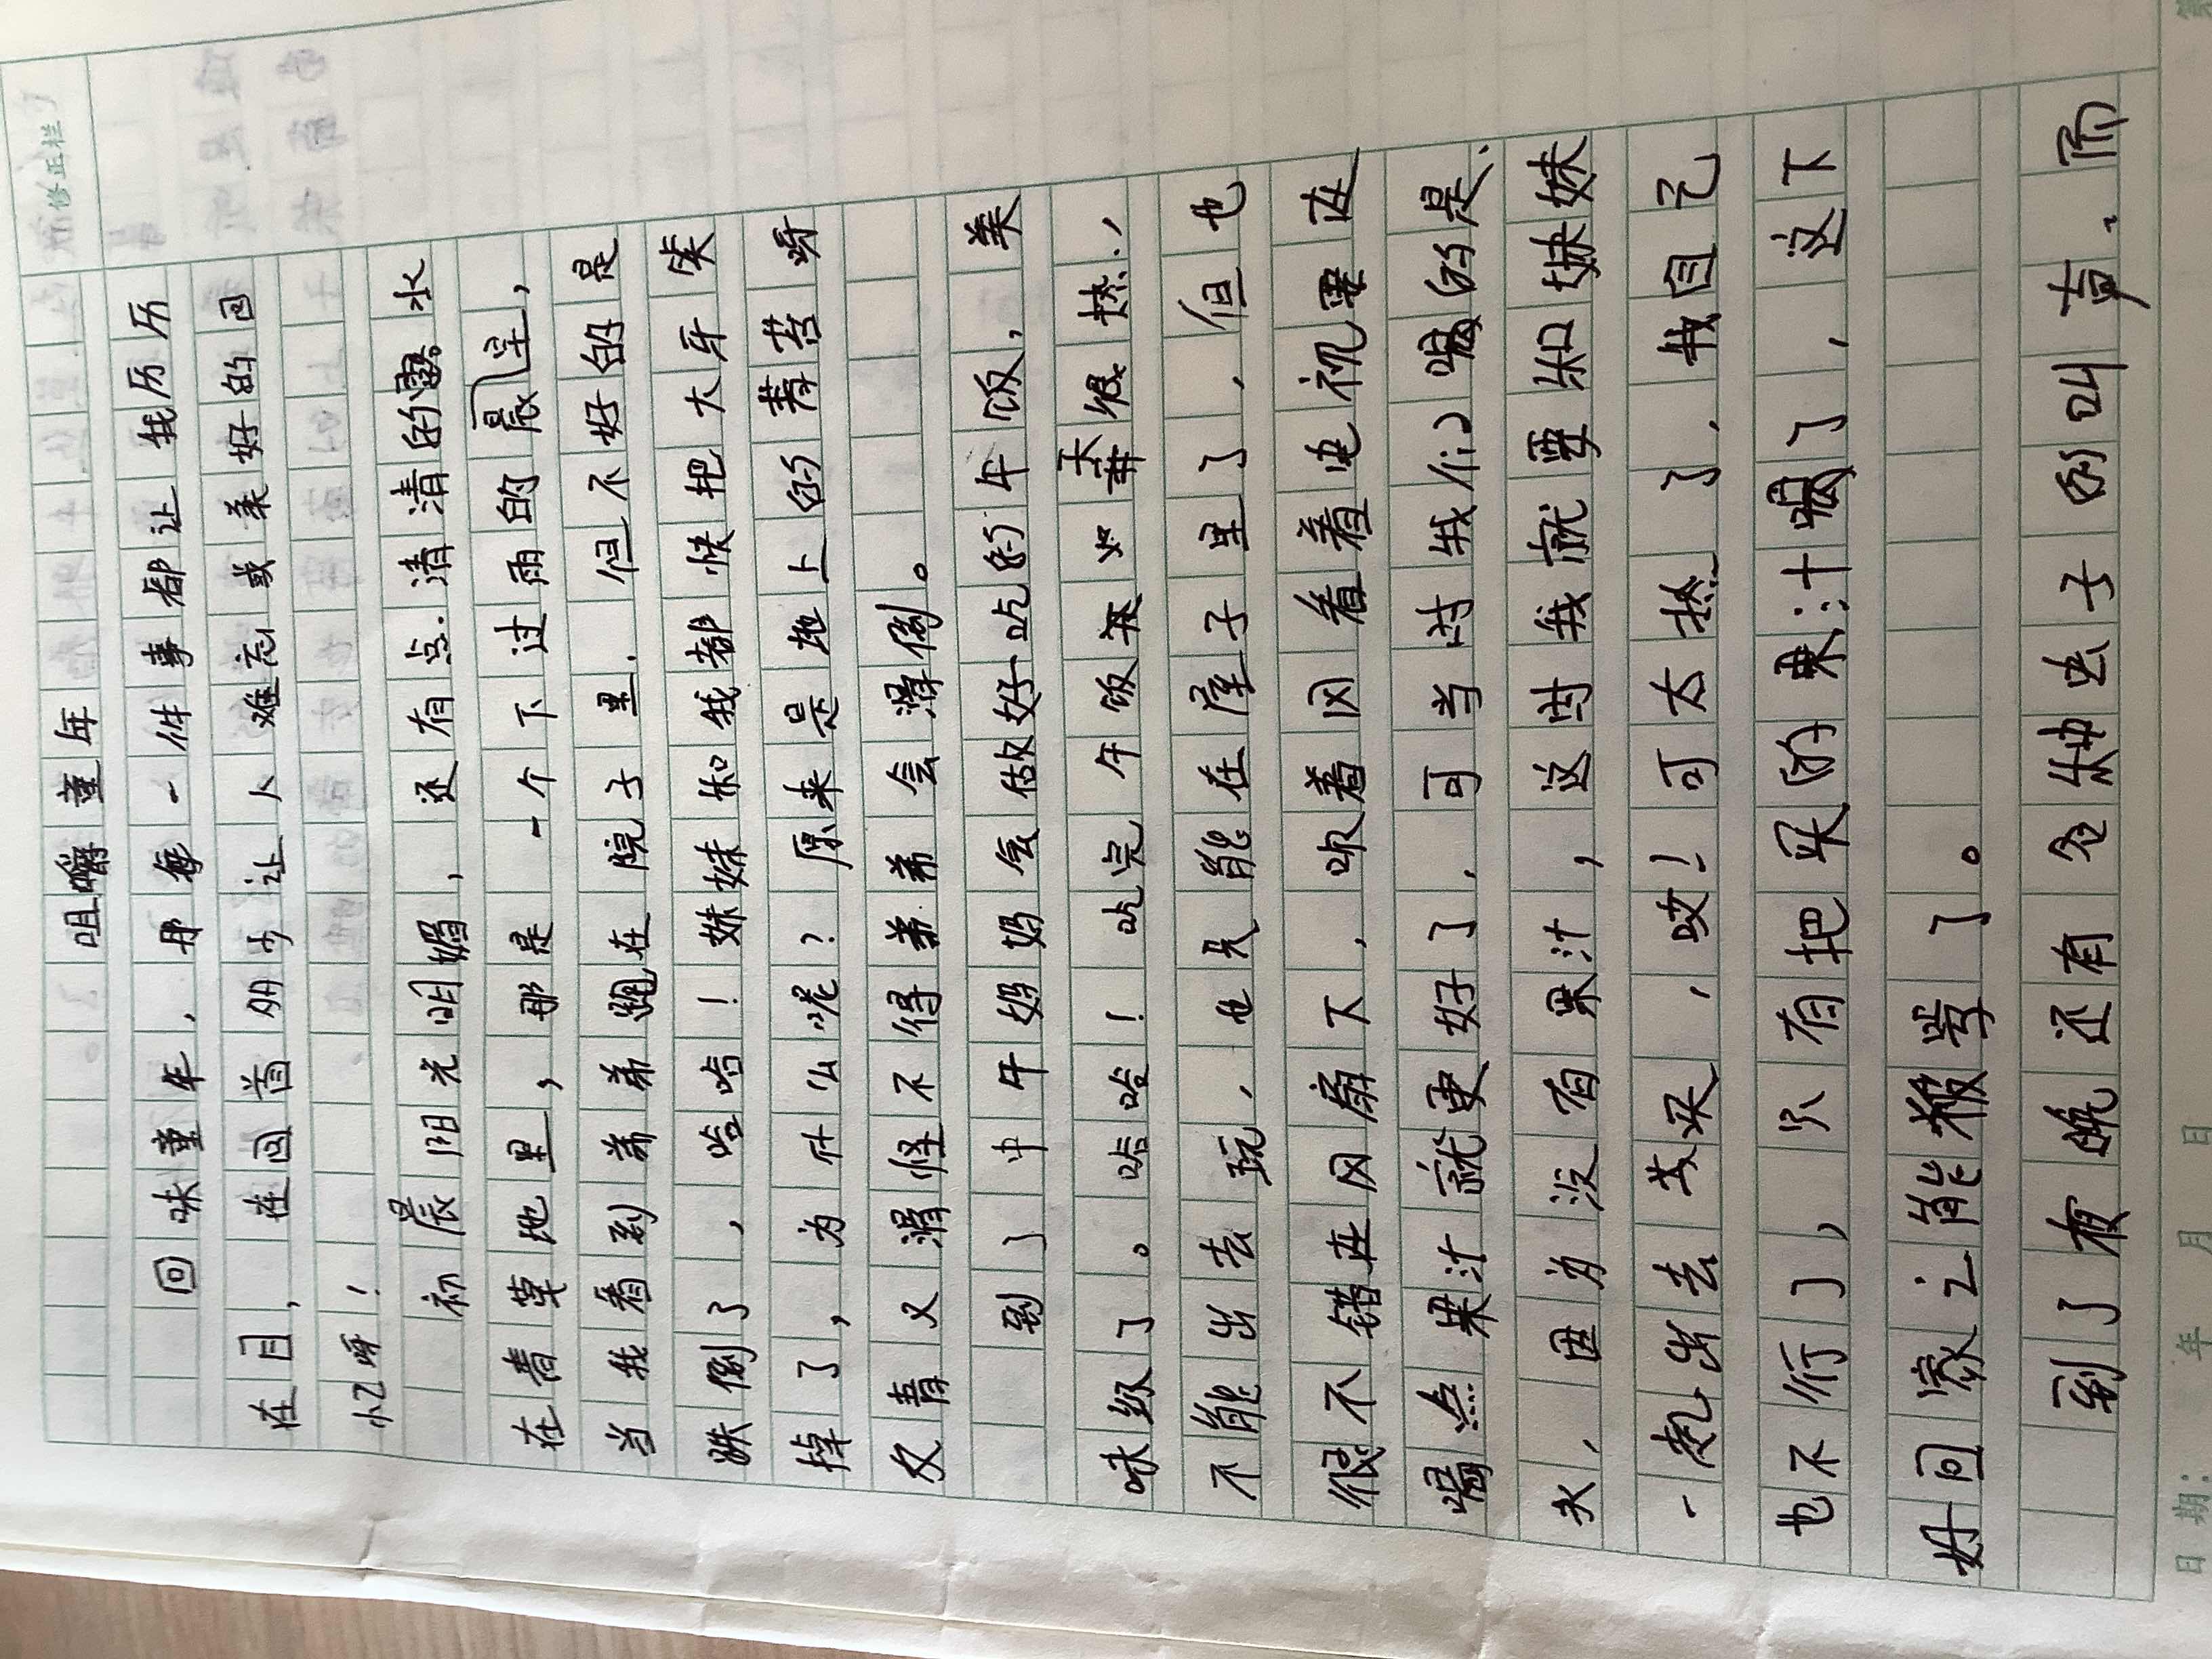 修正栏
咀嚼童年
回味童年,那每一件事都让我历历
在目,在回首多么让人难忘或美好的回
忆呀!
初晨阳光明媚,还有点清清的露水
在青草地里,那是一个下过雨的晨早,
当我看到弟弟跑在院子里,但不好的是
跌倒了,哈哈!妹妹和我都快把大牙笑
掉了,为什么呢?原来是地上的青苔呀
又青又滑怪不得弟弟会滑倒。
到了中午奶奶会做好吃的午饭,美
味极了。哈哈!吃完午饭天很热,
不能出去玩,也只能在屋子里了,但也
很不错在风扇下,吹着风看着电视要再
喝点果汁就更好了,可当时我们喝的是
水,因为没有果汁,这时我就要和妹妹
一起出去买,哎!可太热了,我自己
也不行了,只有把买的果汁喝了,这下
好回家之能被骂了。
到了夜晚还有知虫子的叫声,而
日期: 年 月 日